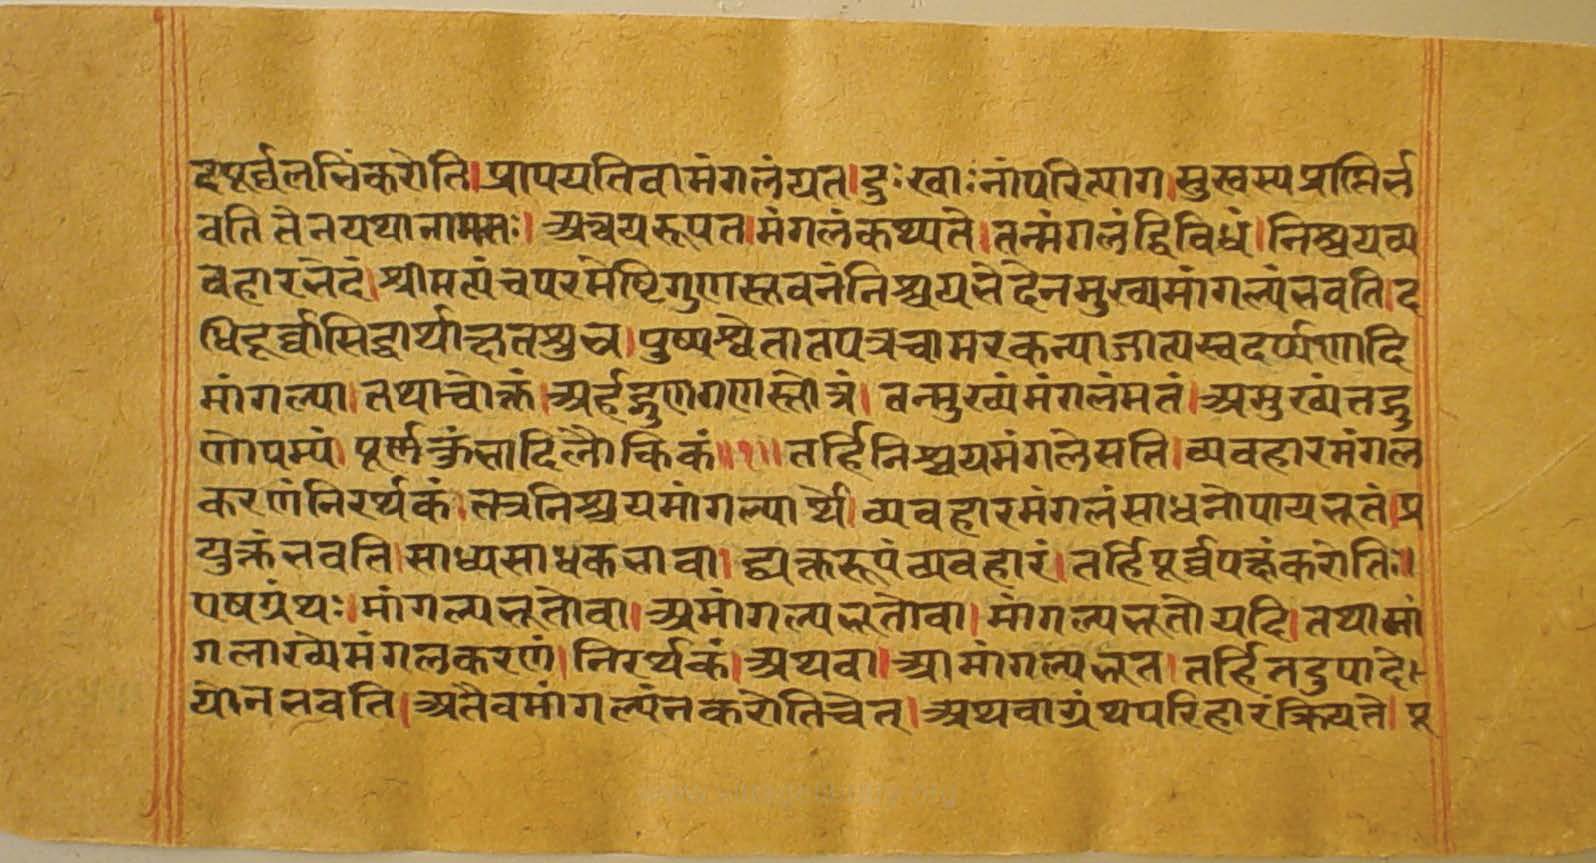 दपूर्व्वलब्धिंकरोति।प्रापयतिवामंगलंयत।दुःखाःनांपरित्याग।सुखस्यप्राप्तिर्भ
वति तेनयथानामसः। अन्वयरूपत।मंगलंकथ्यते।तन्मंगलंद्विविधं।निश्चयव्य
वहारभेदं।श्रीमत्पंचपरमेष्टिगुणस्तवनंनिश्चयभेदेनमुख्यमांगल्यंभवति।द
धिदूर्व्वासिद्धार्थाक्षतशुभ्र।पुष्पश्वेतातपत्रचामरकन्याजात्यस्वदर्प्पणादि
मांगल्या।तथाचोक्तं।अर्हद्गुणगणस्तोत्रं। वन्मुख्यंमंगलंमतं।अमुख्यंतद्गु
णोपम्यं। पूर्णकुंभादिलौकिकं॥१॥तर्हिनिश्चयमंगलेसति।व्यवहारमंगल
करणंनिरर्थकं।तत्रनिश्चयमांगल्यार्थे। व्यवहारमंगलंसाधनोपायभूतं।प्र
युक्तंभवति।साध्यसाधकभावा। द्व्यक्तरूपंव्यवहारं।तर्हिपूर्व्वपक्षंकरोति॥
पषग्रंथः।मांगल्यभूतोवा।अमांगल्यभूतोवा।मांगल्यभूतोयदि।तथामां
गलाख्येमंगलकरणं।निरर्थकं।अथवा।आमांगल्यभूत।तर्हितदुपादे
योनभवति।अतैवमांगल्यंनकरोतिचेत्।अथवाग्रंथपरिहारंक्रियते।पू